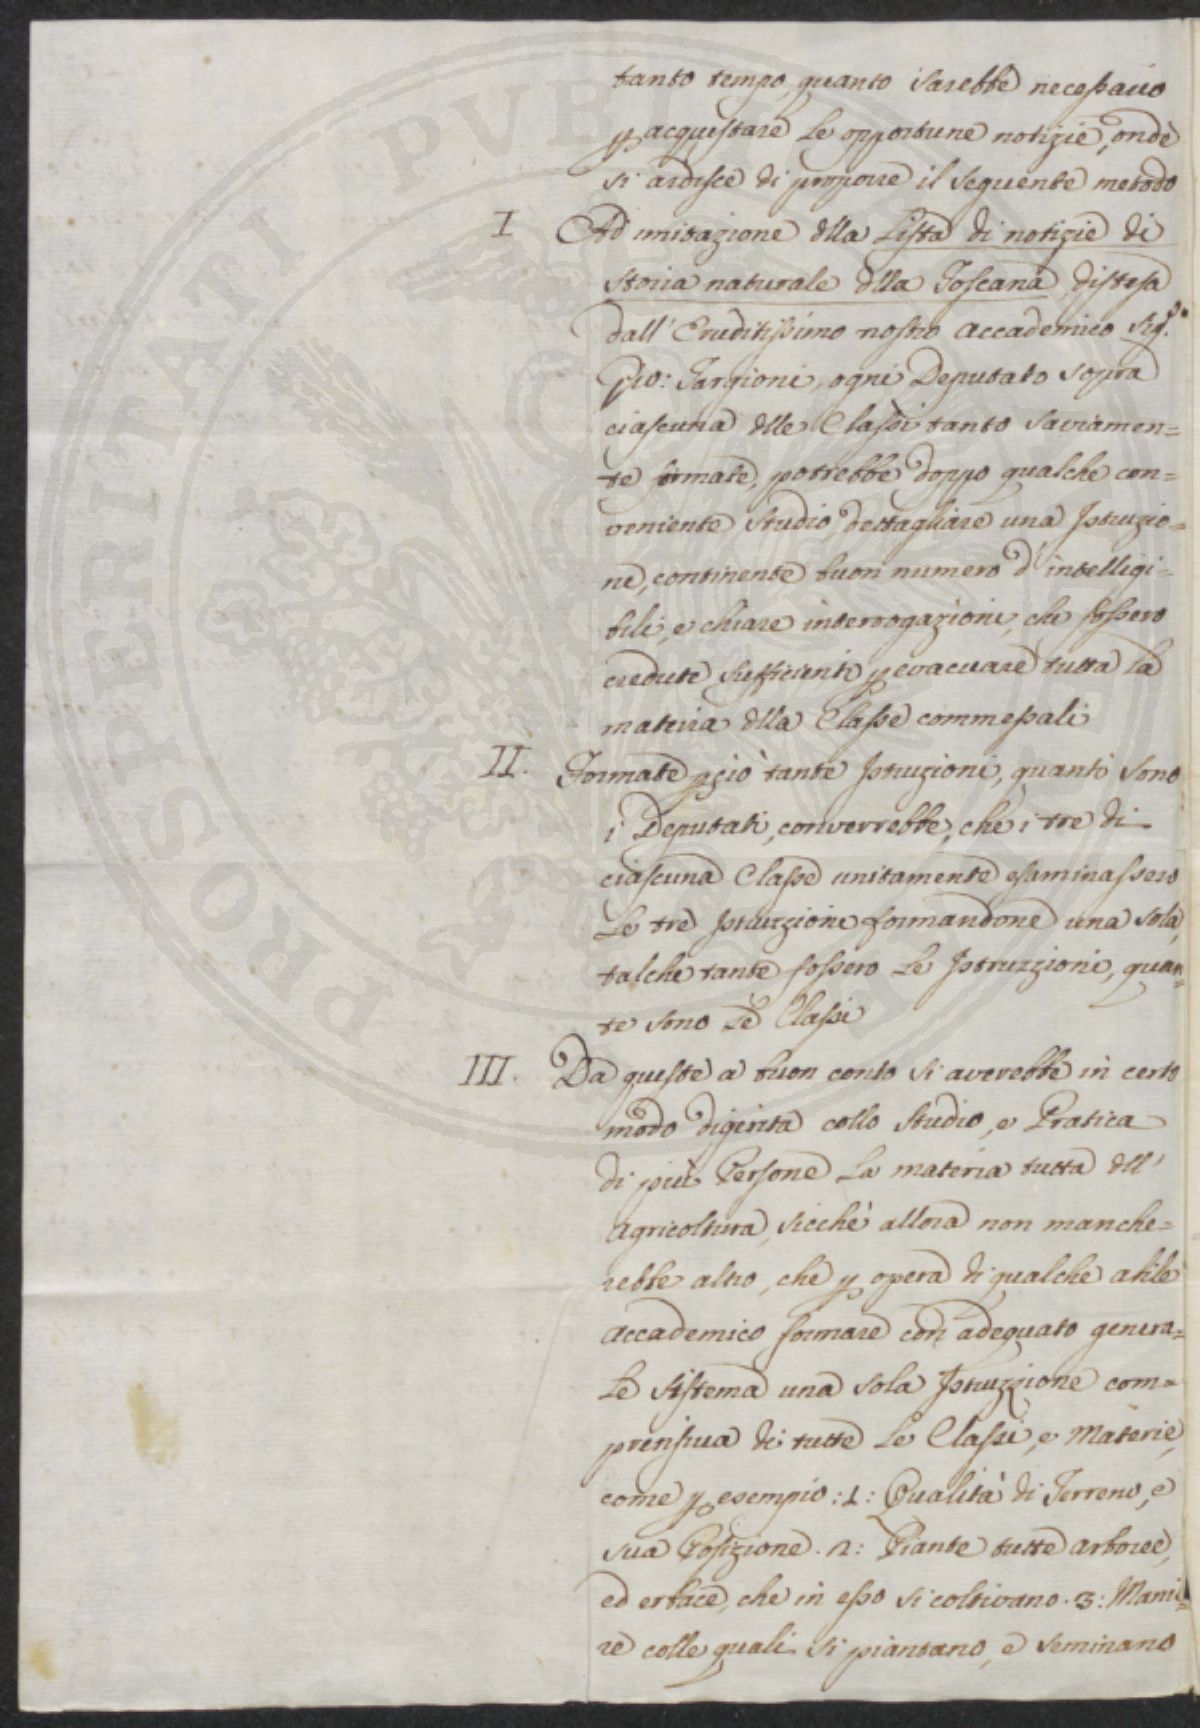 tanto tempo, quanto sarebbe necessario
p acquistare le opportune notizie, onde
si ardisce di proporre il seguente metodo
I Ad imitazione dlla Lista di notizie di
storia naturale dlla Toscana, distesa
dall' Eruditissimo nostro Accademico Sig.re
Gio: Targioni, ogni Deputato sopra
ciascuna dlle Classi tanto saviamen=
te formate, potrebbe doppo qualche con=
veniente studio, dettagliare una Istruzio=
ne, continente buon numero d' intelligi=
bili, e chiare interrogazioni, che fossero
credute sufficienti p evacuare tutta la
materia dlla Classe commessali
II. Formate pciò tante Istruzioni, quanti sono
i Deputati, converrebbe, che i tre di
ciascuna Classe unitamente esaminassero
le tre Istruzzioni formandone una sola,
talche tante fossero le Istruzzioni, quan=
te sono le Classi
III. Da queste a buon conto si averebbe in certo
modo digerita collo studio, e Pratica
di più Persone la materia tutta dll'
Agricoltura, sicchè allora non manche=
rebbe altro, che p opera di qualche abile
Accademico formare con adeguato genera=
le sistema una sola Istruzzione com=
prensiva di tutte le Classi, e Materie,
come p esempio: 1: Qualità di Terreno, e
sua Posizione. 2: Piante tutte arboree,
ed erbace, che in esso si coltivano. 3: Manie=
re colle quali si piantano, e seminano
PROSPERITATI PVBLICAE